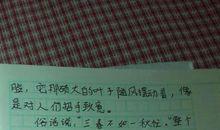 脸，它那硕大的叶子随风摆动着，像
是对人们招手致意。
俗话说，“三春不如一秋忙。”整个